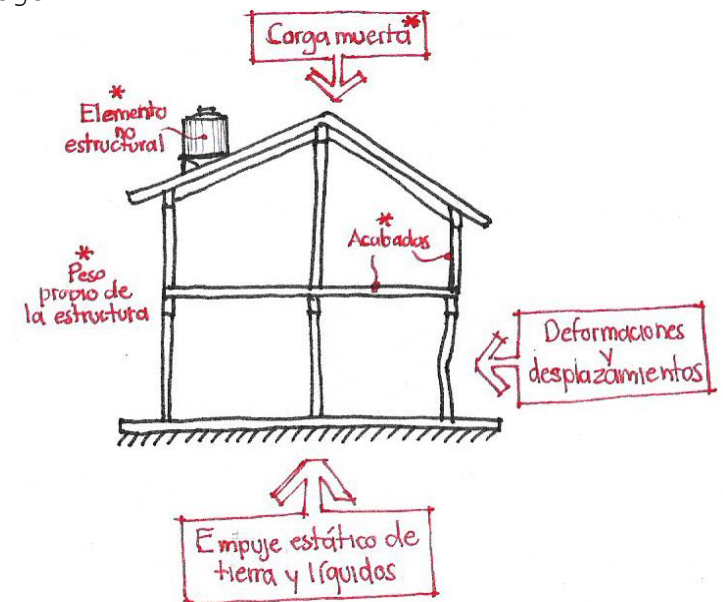 Carga muerta*
*
Elemento
no
estructural
*
Acabados
*
Peso
propio de
la estructura
Deformaciones
y
desplazamientos
Empuje estático de
tierra y líquidos